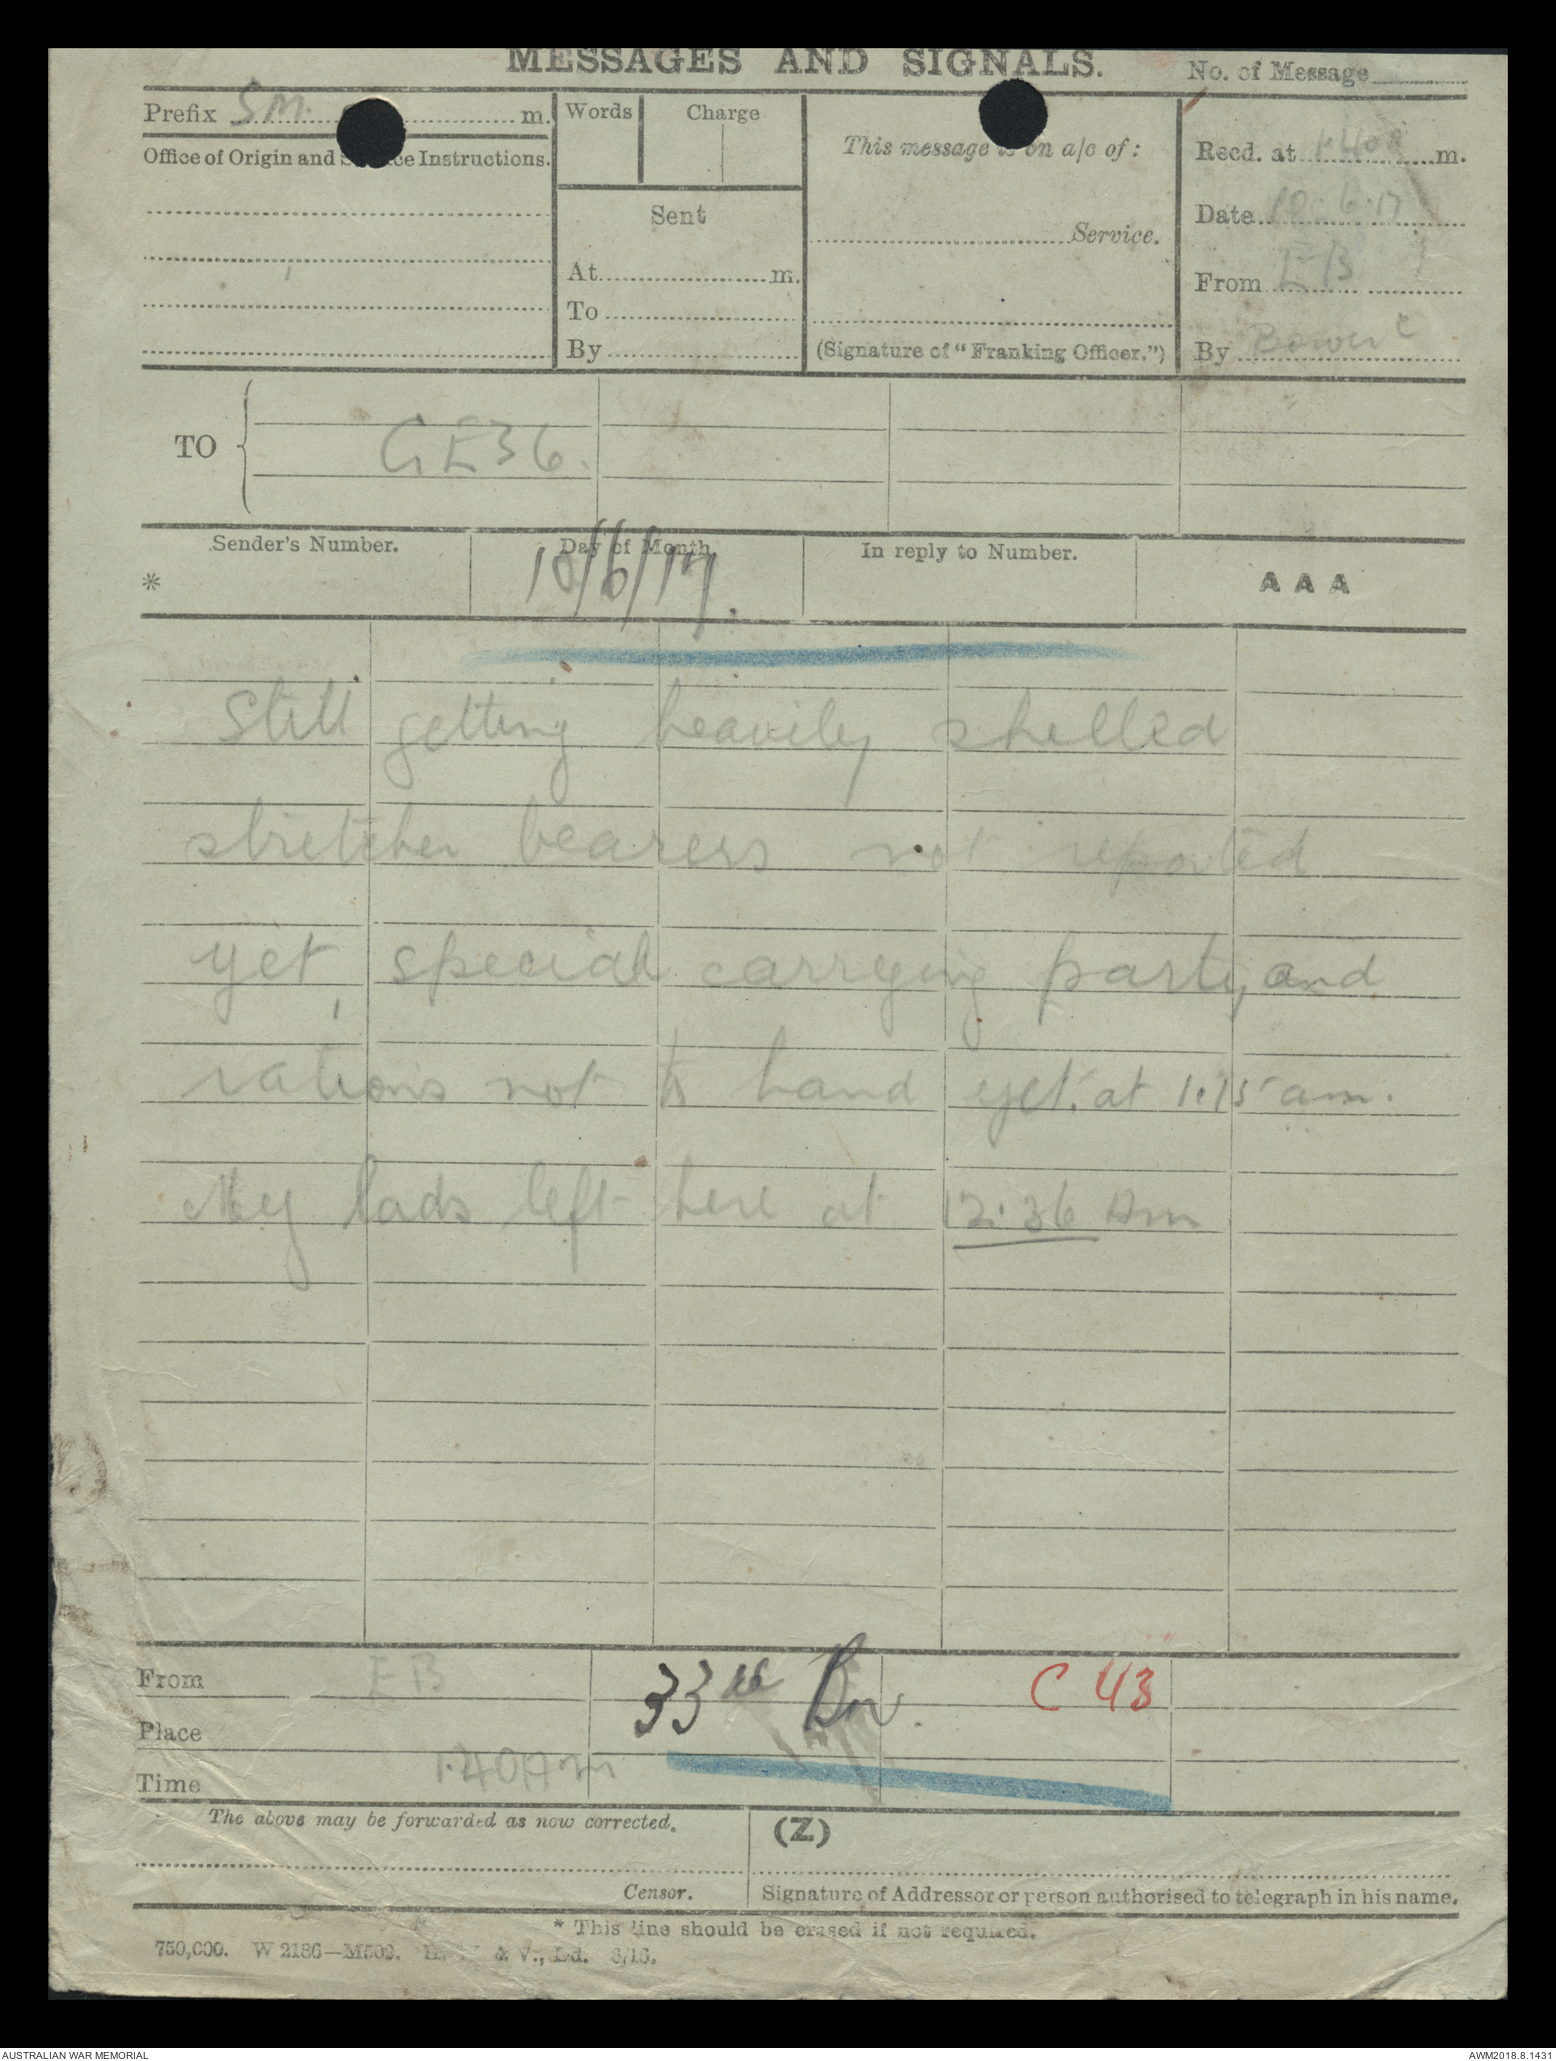 MESSAGES AND SIGNALS.
No. of Message
Prefix SM. m.
Words
Charge
This message is on a/c of:
Recd. at 1.40 A m.
Office of Origin and Service Instructions.
Sent
Date 10.6.17
Service.
At m.
From EB
To
By
(Signature of "Franking Officer.")
By Bower C
TO
GE36.
Sender's Number.
Day of Month.
In reply to Number.
10/6/17.
* AAA
Still getting heavily shelled
stretcher bearers not reported
yet, special carrying party, and
rations not to hand yet. at 1.15 am.
My lads left here at 12.36 Am
From EB
33rd Bn.
C 43
Place
Time 1.40 Am
The above may be forwarded as now corrected.
(Z)
Censor.
Signature of Addressor or person authorised to telegraph in his name.
* This line should be erased if not required.
750,000. W 2186—M509. & V., Ld. 6/16.
AUSTRALIAN WAR MEMORIAL
AWM2018.8.1431